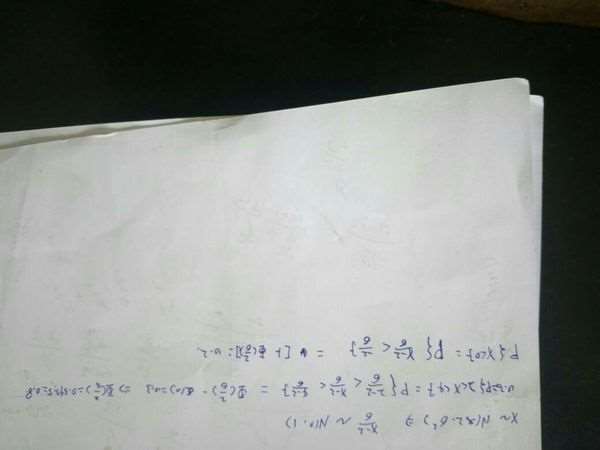 X~N(2·σ²) ⇒ X-2/σ ~ N(0·1)
0.3=P{2<X<4} = P{2-2/σ < X-2/σ < 4-2/σ} = Φ(2/σ) - Φ(0)=0.3 ⇒ Φ(2/σ)=0.3+0.5=0.8
P{X<0} = P{X-2/σ < -2/σ} = [1-Φ(2/σ)]=0.2